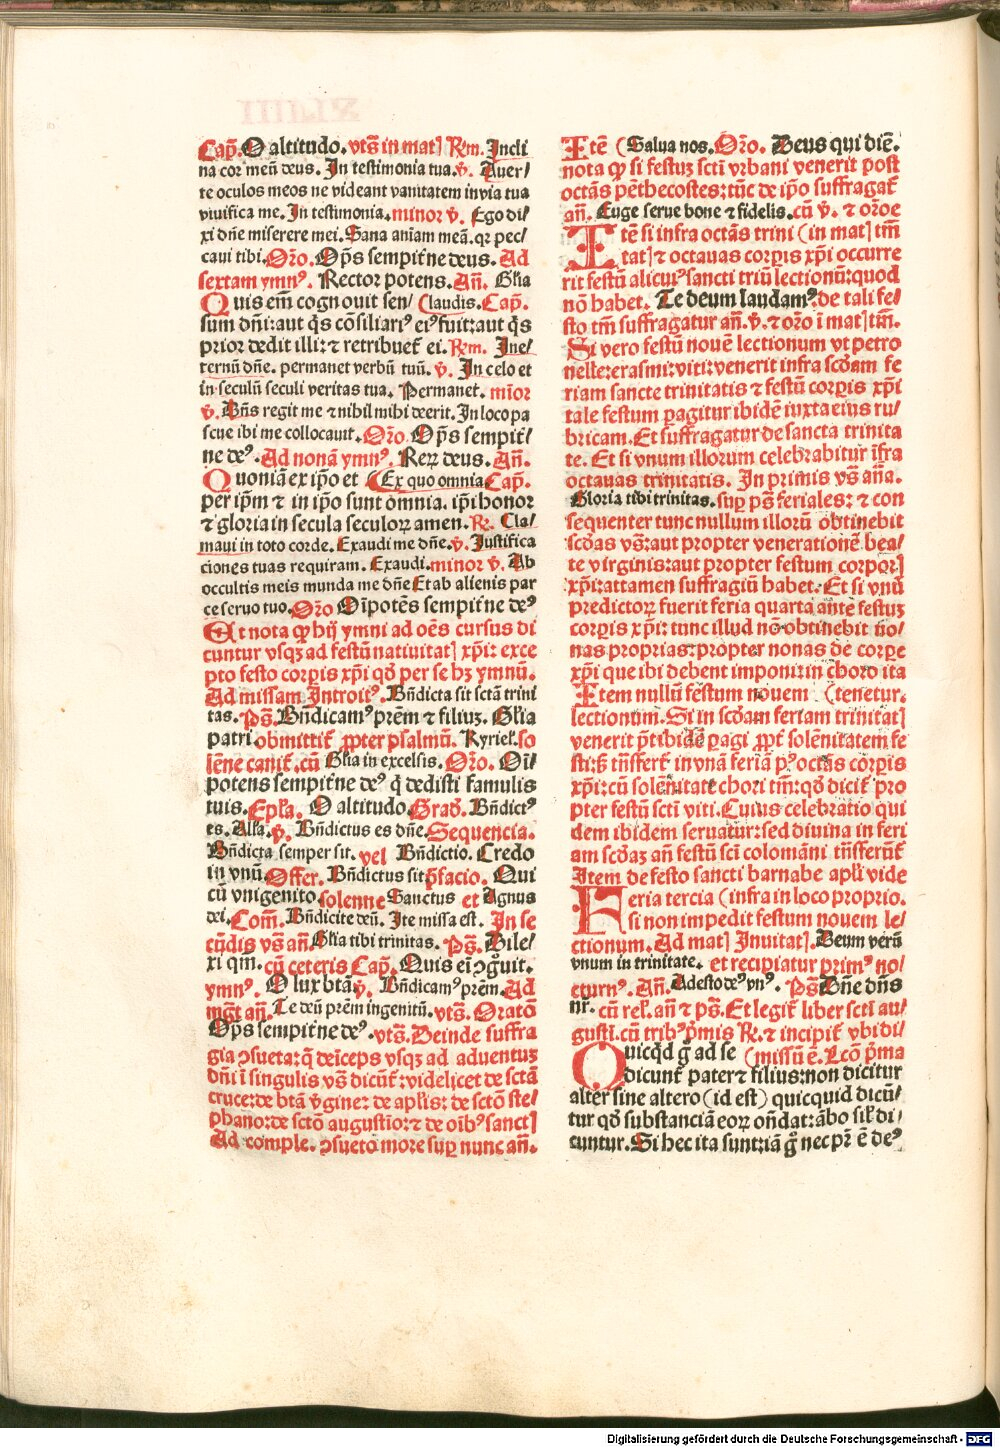 Cap̃. O altitudo. vts̃ in mat] R̃m. Incli
na cor meũ deus. In testimonia tua. v̾. Auer/
te oculos meos ne videant vanitatem in via tua
viuifica me. In testimonia. minor v̾. Ego di/
xi dñe miserere mei. Sana aniam meã. qꝛ pec/
caui tibi. Oro̾. Op̃s sempit̾ne deus. Ad
sextam ymnꝰ. Rector potens. Añ. Gl̃ia
Quis em̃ cognouit sen/ (laudis. Cap̃.
sum dñi: aut q̃s cõsiliariꝰ eiꝰ fuit: aut q̃s
prior dedit illi: ⁊ retribuet̃ ei. R̃m. In e/
ternũ dñe. permanet verbũ tuũ. v̾. In celo et
in seculũ seculi veritas tua. Permanet. mĩor
v̾. Dñs regit me ⁊ nihil mihi deerit. In loco pa
scue ibi me collocauit. Oro̾. Op̃s sempit̾/
ne deꝰ. Ad nonã ymnꝰ. Rerꝝ deus. Añ.
Quoniã ex ip̃o et (Ex quo omnia Cap̃.
per ip̃m ⁊ in ip̃o sunt omnia. ip̃i honor
⁊ gloria in secula seculorꝝ amen. R̃. Cla/
maui in toto corde. Exaudi me dñe. v̾. Justifica
ciones tuas requiram. Exaudi. minor v̾. Ab
occultis meis munda me dñe Et ab alienis par
ce seruo tuo. Oro̾ Om̃potẽs sempit̾ne deꝰ
Et nota ꝙ hij ymni ad oẽs cursus di
cuntur vsqꝫ ad festũ natiuitat] xp̃i: exce
pto festo corpis xp̃i qð per se hꝫ ymnũ.
Ad missam Introitꝰ. Bñdicta sit sctã trini
tas. Ps̃. Bñdicamꝰ prẽm ⁊ filiuꝫ. Gl̃ia
patri obmittit̃ ꝓpter psalmũ. Kyriel̃. so
lẽne canit̃. cũ Gl̃ia in excelsis. Oro̾. Om̃/
potens sempit̾ne deꝰ q̃ dedisti famulis
tuis. Epl̃a. O altitudo. Grad̃. Bñdictꝰ
es. Al̃l̃a. v̾. Bñdictus es dñe. Sequencia.
Bñdicta semper sit. vel Bñdictio. Credo
in vnũ. Offer. Bñdictus sit p̃facio. Qui
cũ vnigenito. solenne Sanctus et Agnus
dei. Com̃. Bñdicite deũ. Ite missa est. In se
cũdis vs̃ añ. Gl̃ia tibi trinitas. Ps̃. Dile/
xi qm̃. cũ ceteris Cap̃. Quis em̃ ꝯgr̃uit.
ymnꝰ. O lux btã. v̾. Bñdicamꝰ prẽm. Ad
mg̃t añ. Te deũ prẽm ingenitũ. vts̃. Oratõ
Op̃s sempit̾ne deꝰ. vts̃. Deinde suffra
gia ꝯsueta: q̃ deĩceps vsqꝫ ad aduentuꝫ
dñi ĩ singulis vs̃ dicũt̃: videlicet de sctã
cruce: de btã v̾gine: de apl̃is: de sctõ ste/
phano: de sctõ augustio: ⁊ de oĩbꝰ sanct]
Ad comple. ꝯsueto more suꝑ nunc añ.
Itẽ (Salua nos. Oro̾. Deus qui diẽ.
nota ꝙ si festuꝫ scti vrbani venerit post
octãs pẽthecostes: tũc de ip̃o suffragat̃
añ. Euge serue bone ⁊ fidelis. cũ v̾. ⁊ oro̾e
Itẽ si infra octãs trini (in mat] tm̃
tat] ⁊ octauas corꝑis xp̃i occurre
rit festũ alicuiꝰ sancti triũ lectionũ: quod
nõ habet. Te deum laudamꝰ. de tali fe/
sto tm̃ suffragatur añ. v̾. ⁊ oro̾ ĩ mat] tm̃.
Si vero festũ nouẽ lectionum vt petro
nelle: erasmi: viti: venerit infra scðam fe
riam sancte trinitatis ⁊ festũ corꝑis xp̃i
tale festum ꝑagitur ibidẽ iuxta eius ru/
bricam. Et suffragatur de sancta trinita
te. Et si vnum illorum celebrabitur ĩfra
octauas trinitatis. In primis vs̃ aña.
Gloria tibi trinitas. suꝑ ps̃ feriales: ⁊ con
sequenter tunc nullum illorũ obtinebit
scðas vs̃: aut propter venerationẽ bea/
te virginis: aut propter festum corpor]
xp̃i: attamen suffragiũ habet. Et si vnũ
predictorꝝ fuerit feria quarta ante festuꝫ
corꝑis xp̃i: tunc illud nõ obtinebit no/
nas proprias: propter nonas de corpe
xp̃i que ibi debent imponi: in choro ita
Item nullũ festum nouem (tenetur.
lectionum. Si in scðam feriam trinitat]
venerit p̃t ibidẽ ꝑagi ꝓpt̃ solẽnitatem fe
sti: s̃ trñsfert̃ in vnã feriã pꝰ octãs corꝑis
xp̃i: cũ solẽnitate chori tm̃: qð dicit̃ pro
pter festũ scti viti. Cuius celebratio qui
dem ibidem seruatur: sed diuina in feri
am scðaꝫ añ festũ sci colomãni trñsferũt̃
Item de festo sancti barnabe apl̃i vide
Feria tercia (infra in loco proprio.
si non impedit festum nouem le/
ctionum. Ad mat] Inuitat]. Deum verũ
vnum in trinitate. et recipiatur primꝰ no/
cturnꝰ. Añ. Adesto deꝰ vnꝰ. Ps̃ Dñe dñs
nr̃. cũ rel̃. añ ⁊ ps̃. Et legit̃ liber scti au/
gusti. cũ tribꝰ p̃mis R̃. ⁊ incipit̃ vbi di/
Quicq̃d g̃ ad se (missũ ẽ. Lc̃o p̃ma
dicunt̃ pater ⁊ filius: non dicitur
alter sine altero (id est) quicquid dicũ/
tur qð substanciã eorꝝ oñdat: ãbo sil̃ di/
cuntur. Si hec ita sunt: iã g̃ nec pr̃ ẽ deꝰ
Digitalisierung gefördert durch die Deutsche Forschungsgemeinschaft - DFG